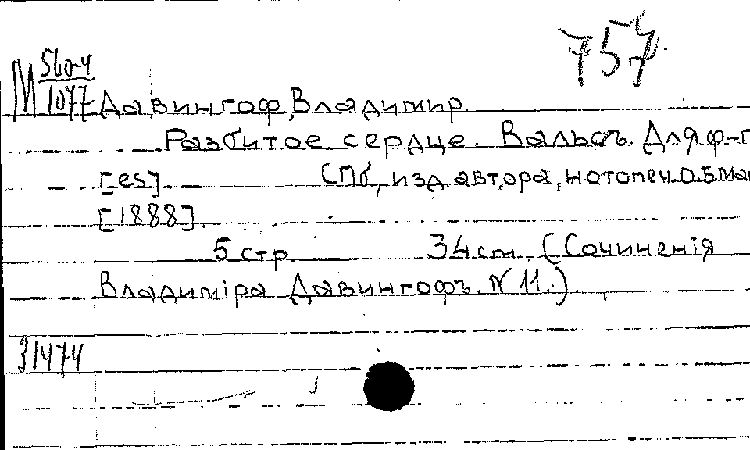 757
М 560-4
1077
Давингоф, Владимир
Разбитое сердце. Вальсъ. Для ф-п
[es] СПб, изд автора, нотопеч. О.Б.Ма
[1888]
5 стр 34 см. (Сочиненія
Владиміра Давингофъ. N 11.)
31474